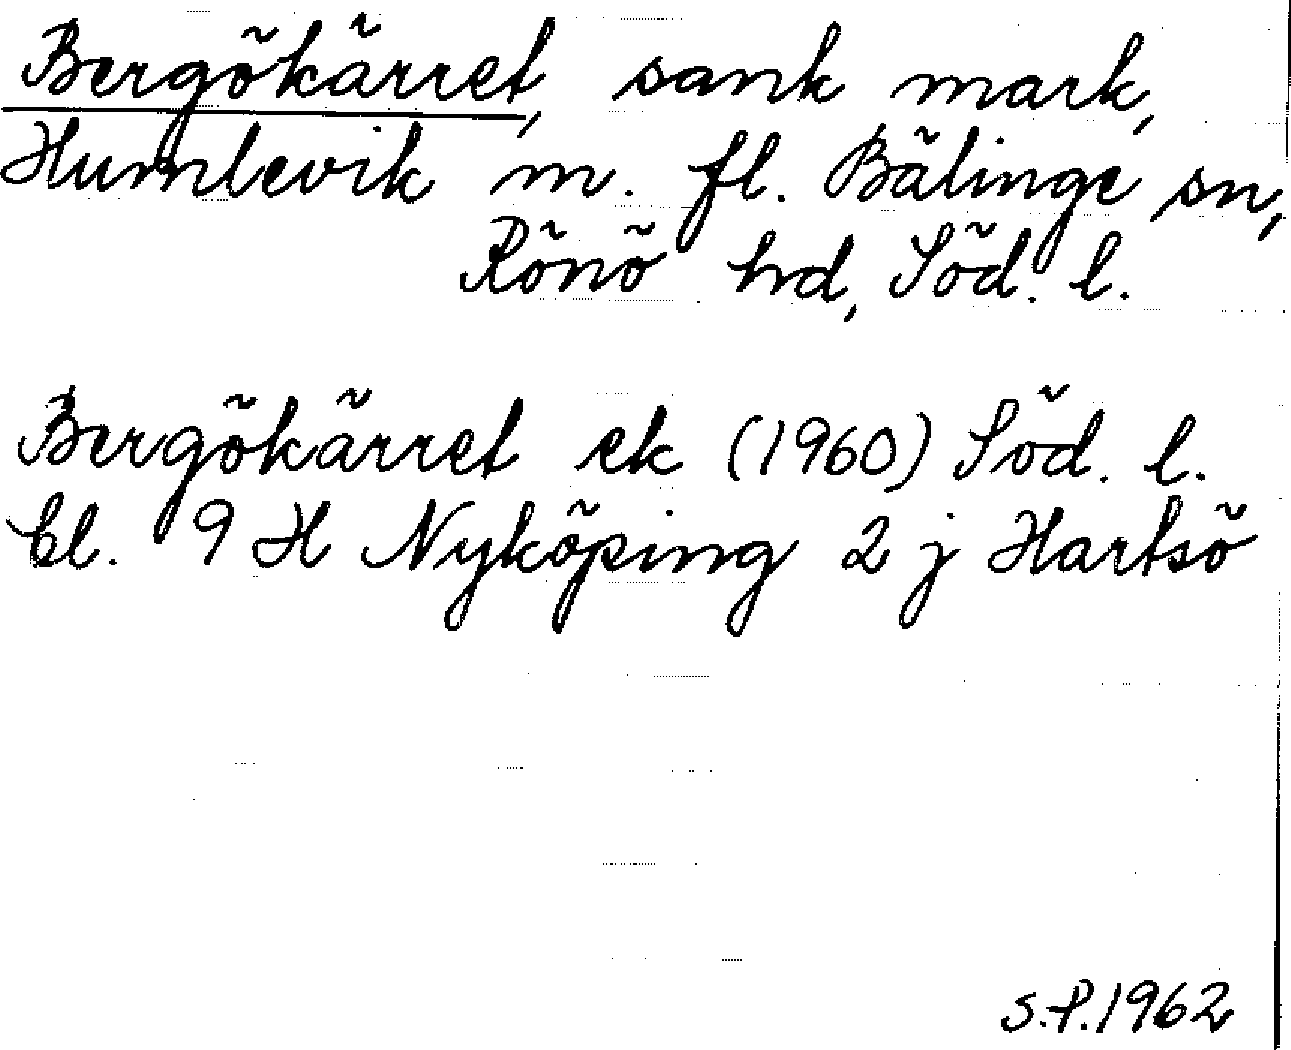 Bergökärret, sank mark,
Humlevik m. fl. Bälinge sn,
Rönö hd, Söd. l.
Bergökärret ek (1960) Söd. l.
bl. 9 H Nyköping 2 j Hartsö
S.P. 1962